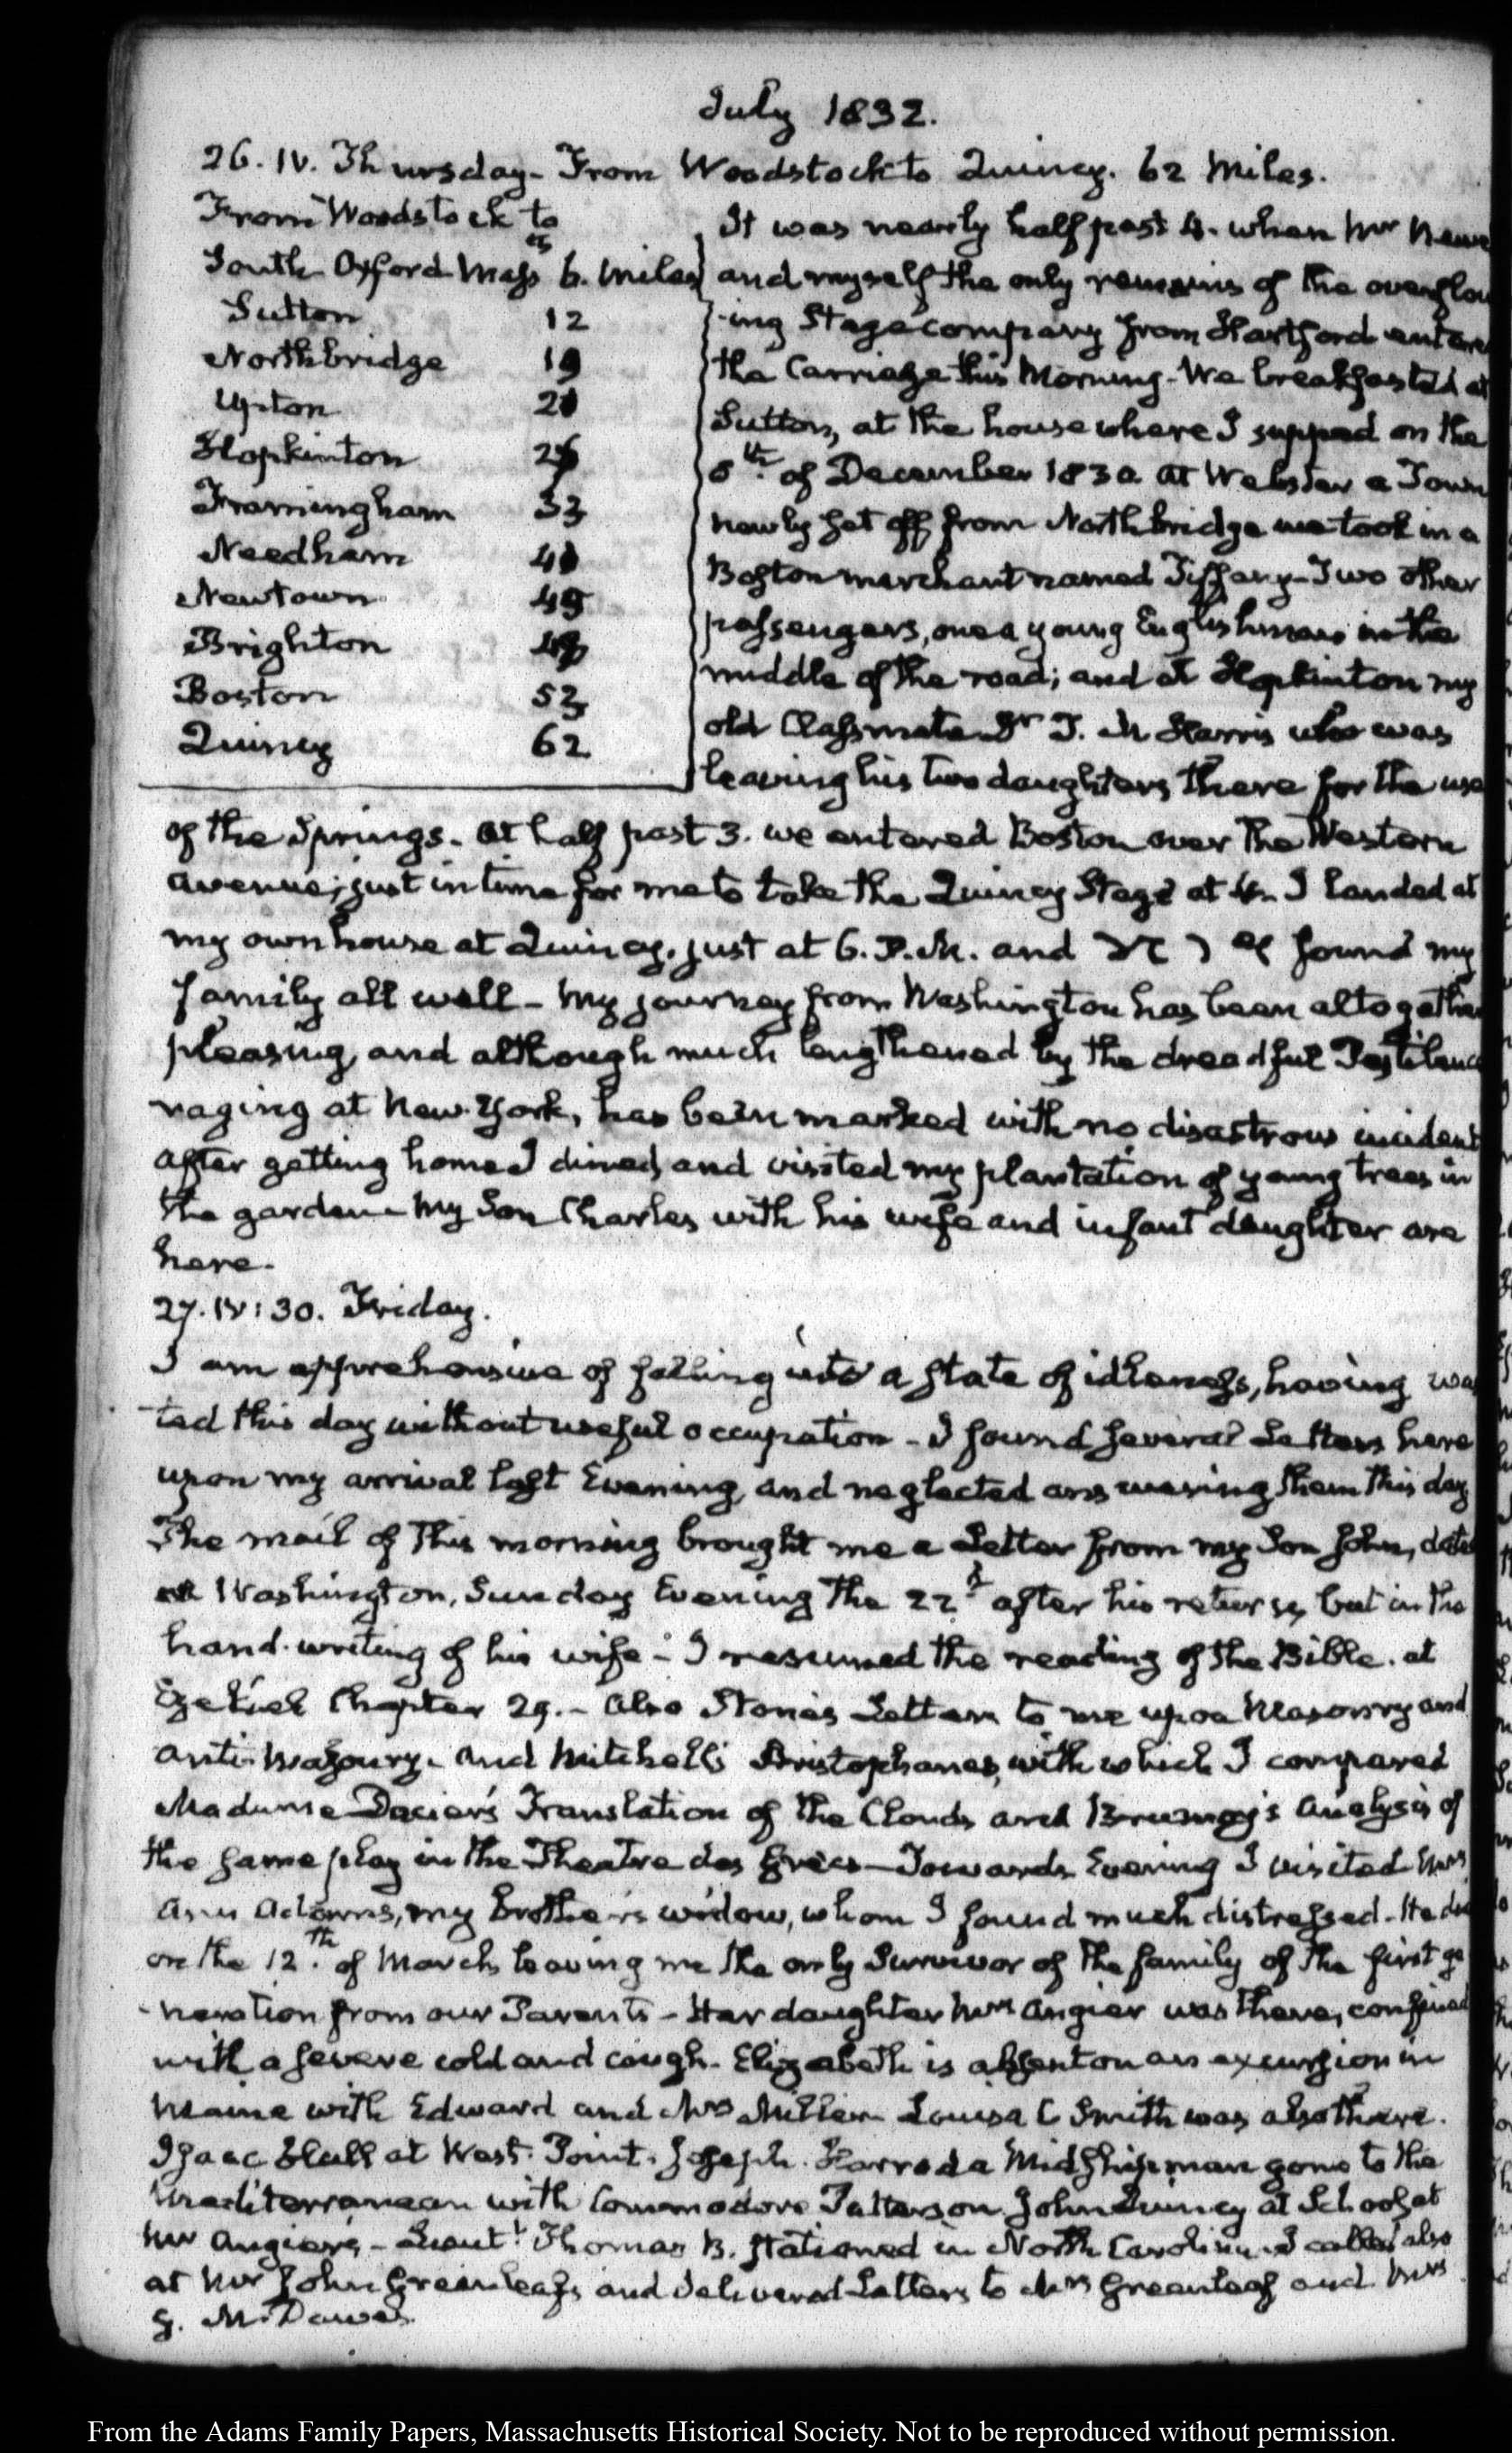 July 1832.
26. IV. Thursday - From Woodstock to Quincy. 62 Miles.
From Woodstock to
South Oxford Mass to 6. miles
Sutton 12
Northbridge 19
Upton 21
Hopkinton 26
Framingham 33
Needham 41
Newtown 45
Brighton 48
Boston 53
Quincy 62
It was nearly half past 4. when Mr
and myself the only remains of the overflow
-ing Stage company from Hartford entere
the Carriage this Morning - We breakfasted at
Sutton, at the house where I supped on the
8th. of December 1830. At Webster a Town
newly set off from Northbridge we took in a
Boston merchant named Tiffany - Two other
passengers, one a young Englishman in the
middle of the road; and at Hopkinton my
old Classmate Dr T. M Harris who was
leaving his two daughters there for the use
of the Springs. At half past 3. we entered Boston over the Western
Avenue; just in time for me to take the Quincy Stage at 4. I landed at
my own house at Quincy, just at 6. P.M. and found my
family all well - My journey from Washington has been altogether
pleasing, and although much lengthened by the dreadful Pestilence
raging at New-York, has been marked with no disastrous incident
After getting home I dined, and visited my plantation of young trees in
the garden - My Son Charles with his wife and infant daughter are
here.
27. IV:30. Friday.
I am apprehensive of falling into a state of idleness, having was
ted this day without useful occupation - I found several Letters here
upon my arrival last Evening, and neglected answering them this day
The mail of this morning brought me a Letter from my Son John, date
at Washington, Sunday Evening the 22d after his return, but in the
hand-writing of his wife - I resumed the reading of the Bible. at
Ezekiel Chapter 29. - Also Stone's Letters to me upon Masonry and
Anti-Masonry. And Mitchell's Aristophanes, with which I compared
Madame Dacier's Translation of the Clouds and Brumoy's Analysis of
the same play in the Theatre des Grecs - Towards Evening I visited Mrs
Ann Adams, my Brother's widow, whom I found much distressed. He died
on the 12th. of March, leaving me the only Survivor of the family of the first ge
-neration from our Parents - Her daughter Mrs Angier was there, confined
with a severe cold and cough. Elizabeth is absent on an excursion in
Maine with Edward and Mrs Miller. Louisa C Smith was also there.
Isaac Hull at West-Point. Joseph Harrod a Midshipman gone to the
Mediterranean with Commodore Patterson John Quincy at School at
Mr Angier's - Lieutt. Thomas B. stationed in North Carolina. I called also
at Mr John Greenleaf's and delivered Letters to Mrs Greenleaf and Mrs
G. M. Dawes.
From the Adams Family Papers, Massachusetts Historical Society. Not to be reproduced without permission.